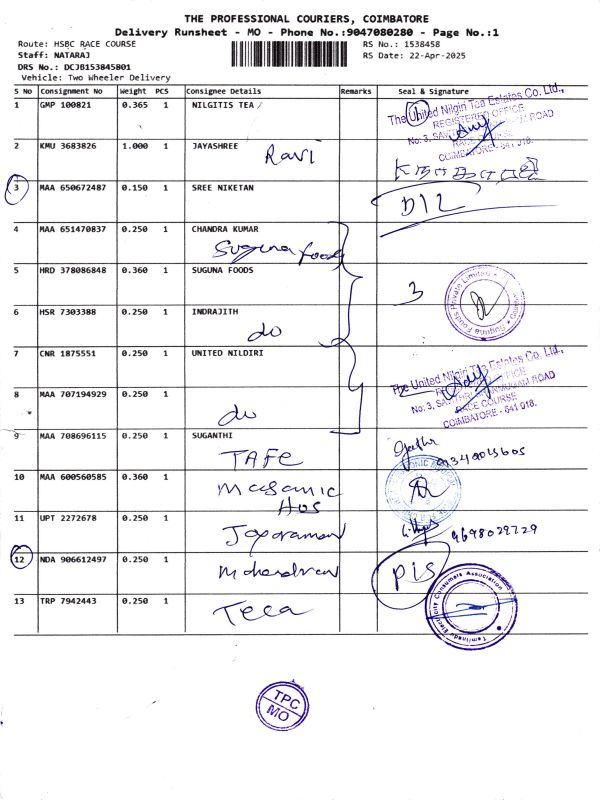 THE PROFESSIONAL COURIERS, COIMBATORE
Delivery Runsheet - MO - Phone No.:9047080280 - Page No.:1
Route: HSBC RACE COURSE
RS No.: 1538458
Staff: NATARAJ
RS Date: 22-Apr-2025
DRS No.: DCJB153845B01
Vehicle: Two Wheeler Delivery
S No Consignment No Weight PCS Consignee Details Remarks Seal & Signature
1 GMP 100821 0.365 1 NILGITIS TEA
The United Nilgiri Tea Estates Co. Ltd.,
REGISTERED OFFICE
No. 3, ROAD
RACE COURSE
COIMBATORE - 641 018.
2 KMU 3683826 1.000 1 JAYASHREE
Ravi
3 MAA 650672487 0.150 1 SREE NIKETAN
D12
4 MAA 651470837 0.250 1 CHANDRA KUMAR
Suguna foods
5 HRD 378086848 0.360 1 SUGUNA FOODS
3
Suguna Foods Private Limited
6 HSR 7303388 0.250 1 INDRAJITH
do
7 CNR 1875551 0.250 1 UNITED NILDIRI
The United Nilgiri Tea Estates Co. Ltd.,
8 MAA 707194929 0.250 1
do
No. 3, ROAD
RACE COURSE
COIMBATORE - 641 018.
9 MAA 708696115 0.250 1 SUGANTHI
TAFE
10 MAA 600560585 0.360 1
Masanic
Hos
11 UPT 2272678 0.250 1
Jayaraman
9698029729
12 NDA 906612497 0.250 1
Mohandran
PIS
13 TRP 7942443 0.250 1
Teca
Tamilnadu Electricity Consumers Association
TPC
MO